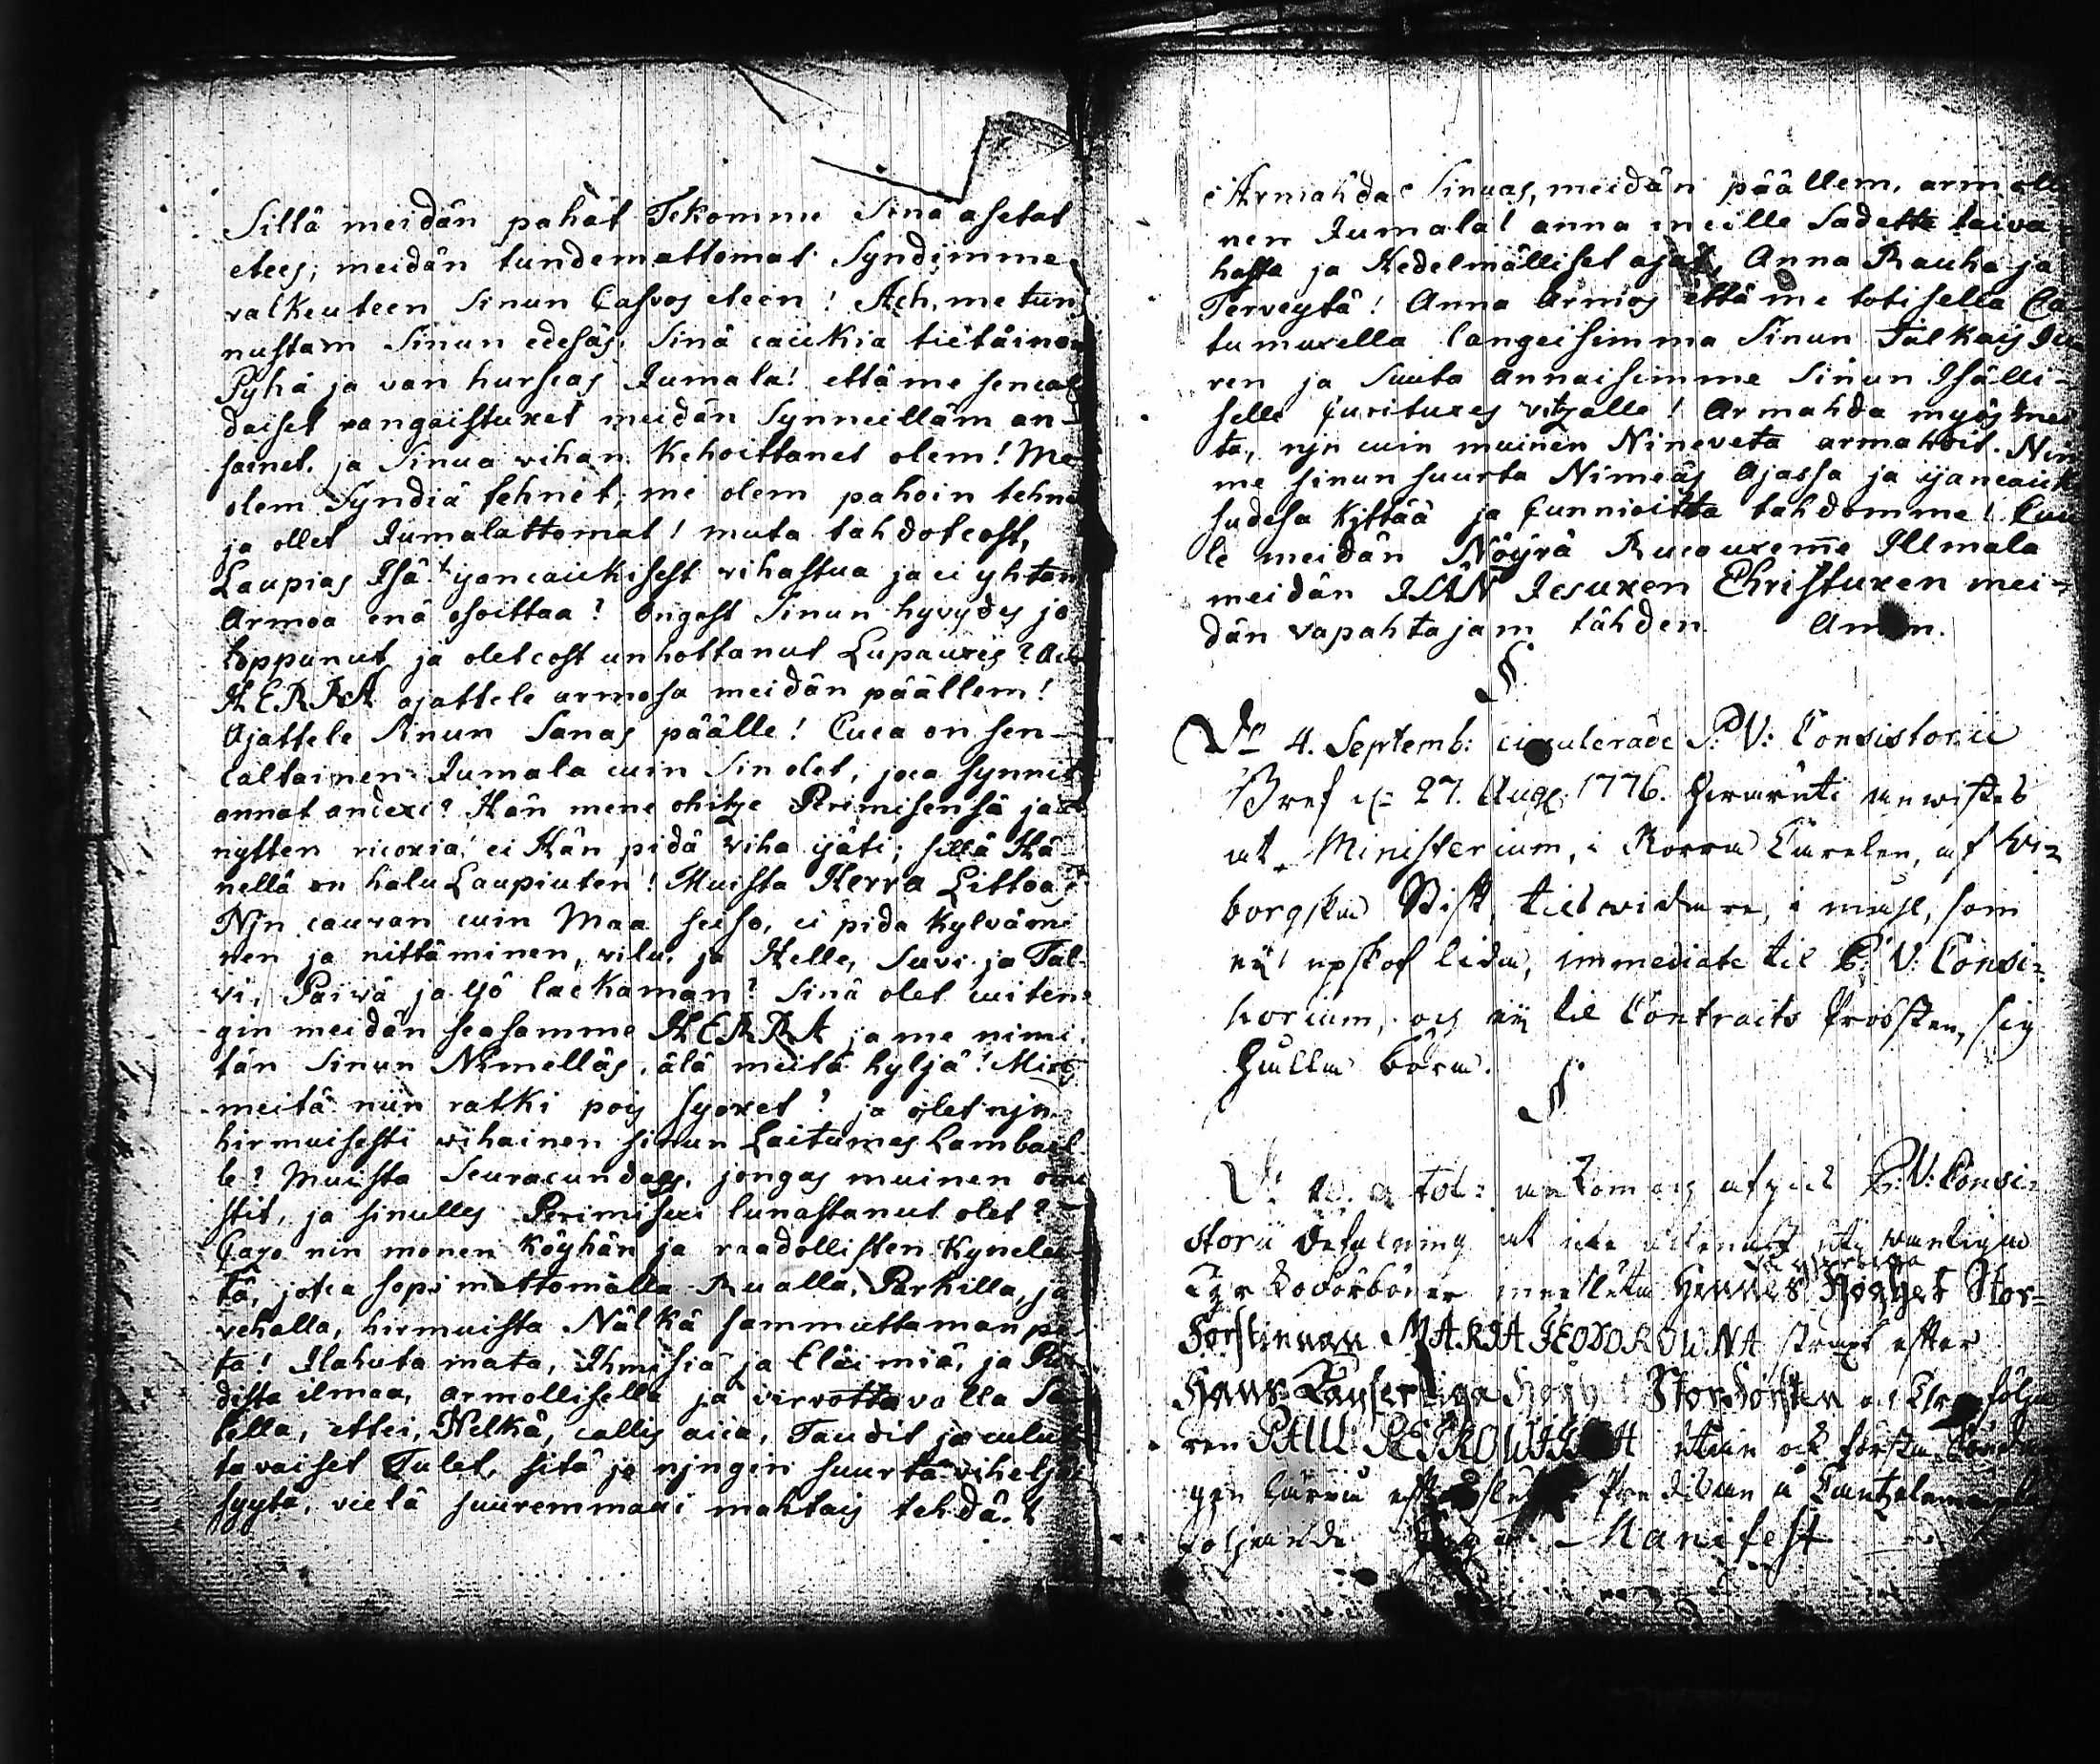 Sillä meidän pahat Tekomme Sinä asetat
etees, meidän tundemattomat Syndimme
valkeuteen Sinun Casvos eteen! Ach, me tun
nustam Sinun edesäs, Sinä caickia tietäinen
Pyhä ja van hurscas Jumala! että me sencal
daiset rangaistuxet meidän Synneilläm an-
sainet, ja Sinua vihan kehoittanet olem! Me
olem Syndiä tehnet, me olem pahoin tehne
ja ollet Jumalattomat! muta tahdotcost,
Laupias Isä! yancaickisest vihastua ja ei yhtän
Armoa enä osoittaa? Ongost Sinun hyvydes jo
loppunut, ja oletcost unhottanut Lupauxes? Ach
HERRA ajattele armosa meidän päällem!
Ajattele Sinun Sanas päälle! Cuca on sen-
caltainen Jumala cuin Sin olet, joca synnit
annat andexi? Hän mene ohitze Perimisensä jä
nytten ricoxia, ei Hän pidä viha ijäti; sillä Hä
nellä on halu Laupiuten! Muista Herra Littoas
Nijn cauvan cuin Maa seiso, ei pidä kylvämi
nen ja nittäminen, vilu, ja Helle, Suvi ja Tal-
vi, Päivä ja Yö lackaman? Sinä olet cuiten-
gin meidän seasamme HERRA ja me nimi
tän Sinun Nimelläs, älä meitä hyljä! Mixi
meitä niin ratki pois syöxet? ja olet nijn
hirmuisesti vihainen sinun Laitumes Lambail
le? Muista Seuracundas, jongas muinen omi
stit, ja sinulles Perimisexi lunastanut olet?
Cazo nin monen köyhän ja raadollisten Kynelei
tä, jotca sopimattomalla Rualla, Parkilla, ja
vehalla, hirmuista Nälkä sammuttaman pi
tä! Ilahuta mata, Ihmisiä ja Eläimiä, ja Pu
dista ilmaa, armollisella ja virvottavalla Sa
tella, ettei, Nelkä, callis aica, Taudit ja culut
tavaiset Tulet, sitä jo nijngin suurta viheljäi
syytä, vielä suuremmaxi mahtais tehdä.
Armahda Sinuas, meidän päällem, armolli
nen Jumala! anna meille Sadetta taiva-
hasta ja Hedelmälliset ajat, Anna Rauha ja
Terveytä! Anna Armos että me totisella Ca
tumuxella langeisimma Sinun Jalkais Ju
ren ja Suuta annaisimme Sinun Isälli-
selle Curituxes vitzalle! Armahda myös mei
tä, nijn cuin muinen Ninevetä armahdit. Nin
me sinun suurta Nimeäs Ajassa ja ijancaick
sudesa kijttää ja Cunnioitta tahdomme! Cuu
le meidän Nöyrä Rucouxemme Illmala
meidän HERRAN Jesuxen Christuxen mei-
dän vapahtajam tähden. Amen.
§
Dn 4. Septemb: circulerade P: V: Consistorii
Bref af 27. Aug: 1776. hvaruti anvistes
at Ministerium, i Norra Carelen, af Wi-
borgska Stift, tilsvidare, i mål, som
ej upskof lida, immediate til P: V: Consi-
storium, och ej til Contracts Prosten, sig
hålla böra.
§
ankom och afgick P: V: Consi-
storii Befalning at icke allenast uti vanliga
Kyrkoboböner innesluta Hennes Höghet Stor-
Förstinnan MARIA FEODOROWNA strax efter
Hans Kayserliga Höghet StorFörsten och Thronfölja
ren PAUL PETROWITSCH utan ock första Sönda
gen härnä efter sluten Predikan
följande Manifest